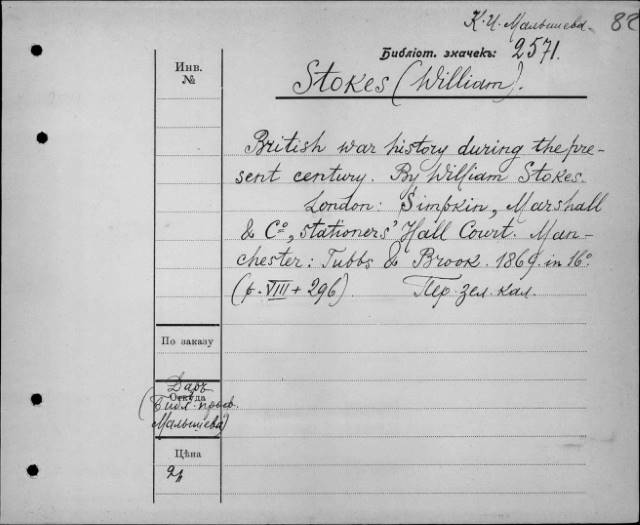 К. И. Малышева
82
Библіот. значекъ: 2571.
Инв.
№
Stokes (William).
British war history during the pre-
sent century. By William Stokes.
London: Simpkin, Marshall
& Cº, stationers' Hall Court. Man-
chester: Tubbs & Brook. 1869. in 16º.
(p. VIII + 296). Пер. зел. кал.
По заказу
Даръ
Откуда
(Библ. проф.
Малышева)
Цѣна